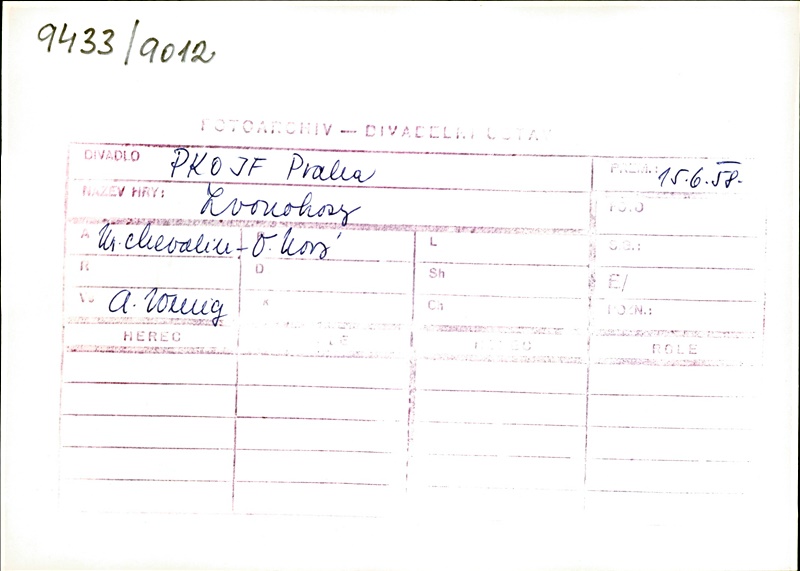 9433/9012
FOTOARCHIV — DIVADELNÍ ÚSTAV
DIVADLO PKOJF Praha PREM.: 15.6.58.
NÁZEV HRY: Zvonokosy FOTO
A G. Chevalier - O. Nový L Č.B.:
R D Sh E/
Vý A. Wenig K Ch POZN.:
HEREC ROLE HEREC ROLE